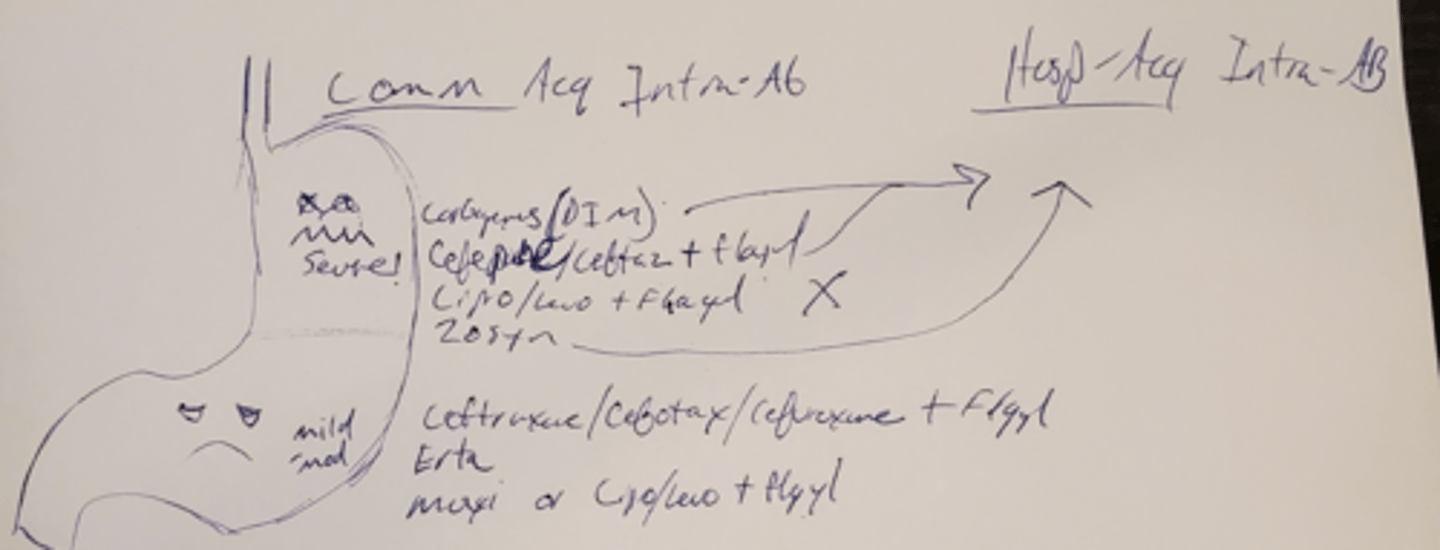 Comm Acq Intra-Ab
Hosp-Acq Intra-AB
Severe!
(DIM)
Cefepime/Ceftaz + flagyl
Cipro/Levo + Flagyl X
Zosyn
mild
-mod
Ceftriaxone/Cefotax/Cefuroxime + Flgyl
Erta
moxi or Cipro/Levo + flgyl